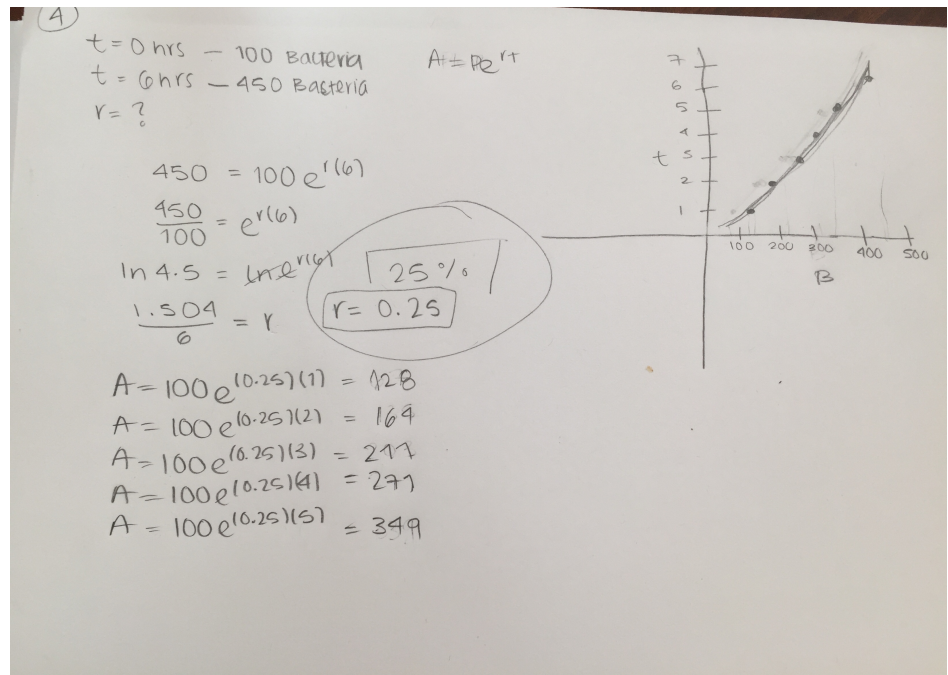 4
t = 0 hrs – 100 Bacteria
A = Pe^rt
t = 6 hrs – 450 Bacteria
r = ?
450 = 100 e^r(6)
450/100 = e^r(6)
ln 4.5 = ln e^r(6)
1.504/6 = r
25%
r = 0.25
A = 100 e^(0.25)(1) = 128
A = 100 e^(0.25)(2) = 164
A = 100 e^(0.25)(3) = 211
A = 100 e^(0.25)(4) = 271
A = 100 e^(0.25)(5) = 349
7
6
5
4
t 3
2
1
100 200 300 400 500
B